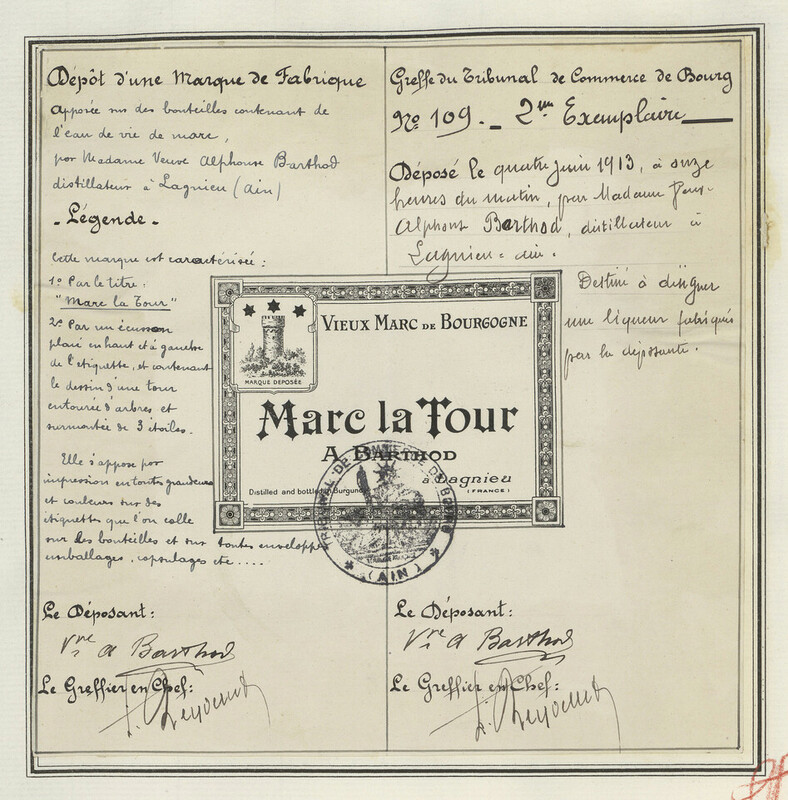 Dépôt d'une Marque de Fabrique
apposée sur des bouteilles contenant de
l'eau de vie de marc,
par Madame Veuve Alphonse Barthod
distillateur à Lagnieu (ain)
- Légende -
Cette marque est caractérisée :
1º Par le titre :
"Marc la Tour"
2º Par un écusson
placé en haut et à gauche
de l'étiquette, et contenant
le dessin d'une tour
entourée d'arbres et
surmontée de 3 étoiles.
Elle s'appose par
impression en toutes grandeurs
et couleurs sur des
étiquettes que l'on colle
sur les bouteilles et sur toutes enveloppes
emballages, capsulages etc....
Le Déposant :
Vve A Barthod
Le Greffier en Chef :
Greffe du Tribunal de Commerce de Bourg
Nº 109. - 2me Exemplaire
Déposé le quatre juin 1913, à onze
heures du matin, par Madame Veuve
Alphonse Barthod, distillateur à
Lagnieu - ain.
Destiné à désigner
une liqueur fabriquée
par la déposante.
VIEUX MARC DE BOURGOGNE
MARQUE DÉPOSÉE
Marc la Tour
A BARTHOD
à Lagnieu
Distilled and bottled Burgundy
(FRANCE)
TRIBUNAL DE COMMERCE DE BOURG
(AIN)
Le Déposant :
Vve A Barthod
Le Greffier en Chef :